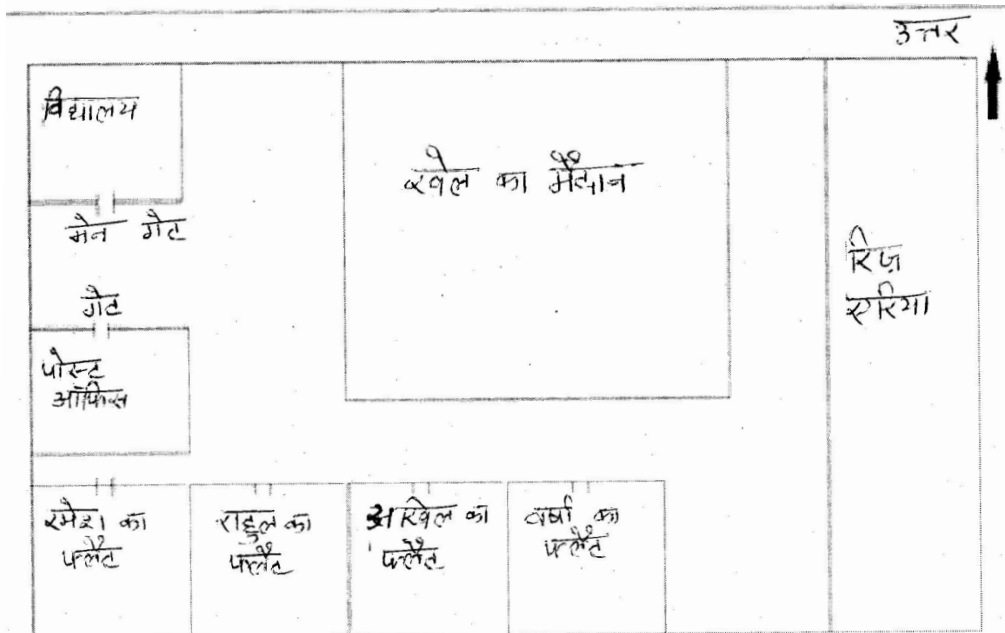 उत्तर
विद्यालय
खेल का मैदान
मेन गेट
रिज़
एरिया
गेट
पोस्ट
ऑफिस
रमेश का
फ्लैट
राहुल का
फ्लैट
अखिल का
फ्लैट
वर्षा का
फ्लैट